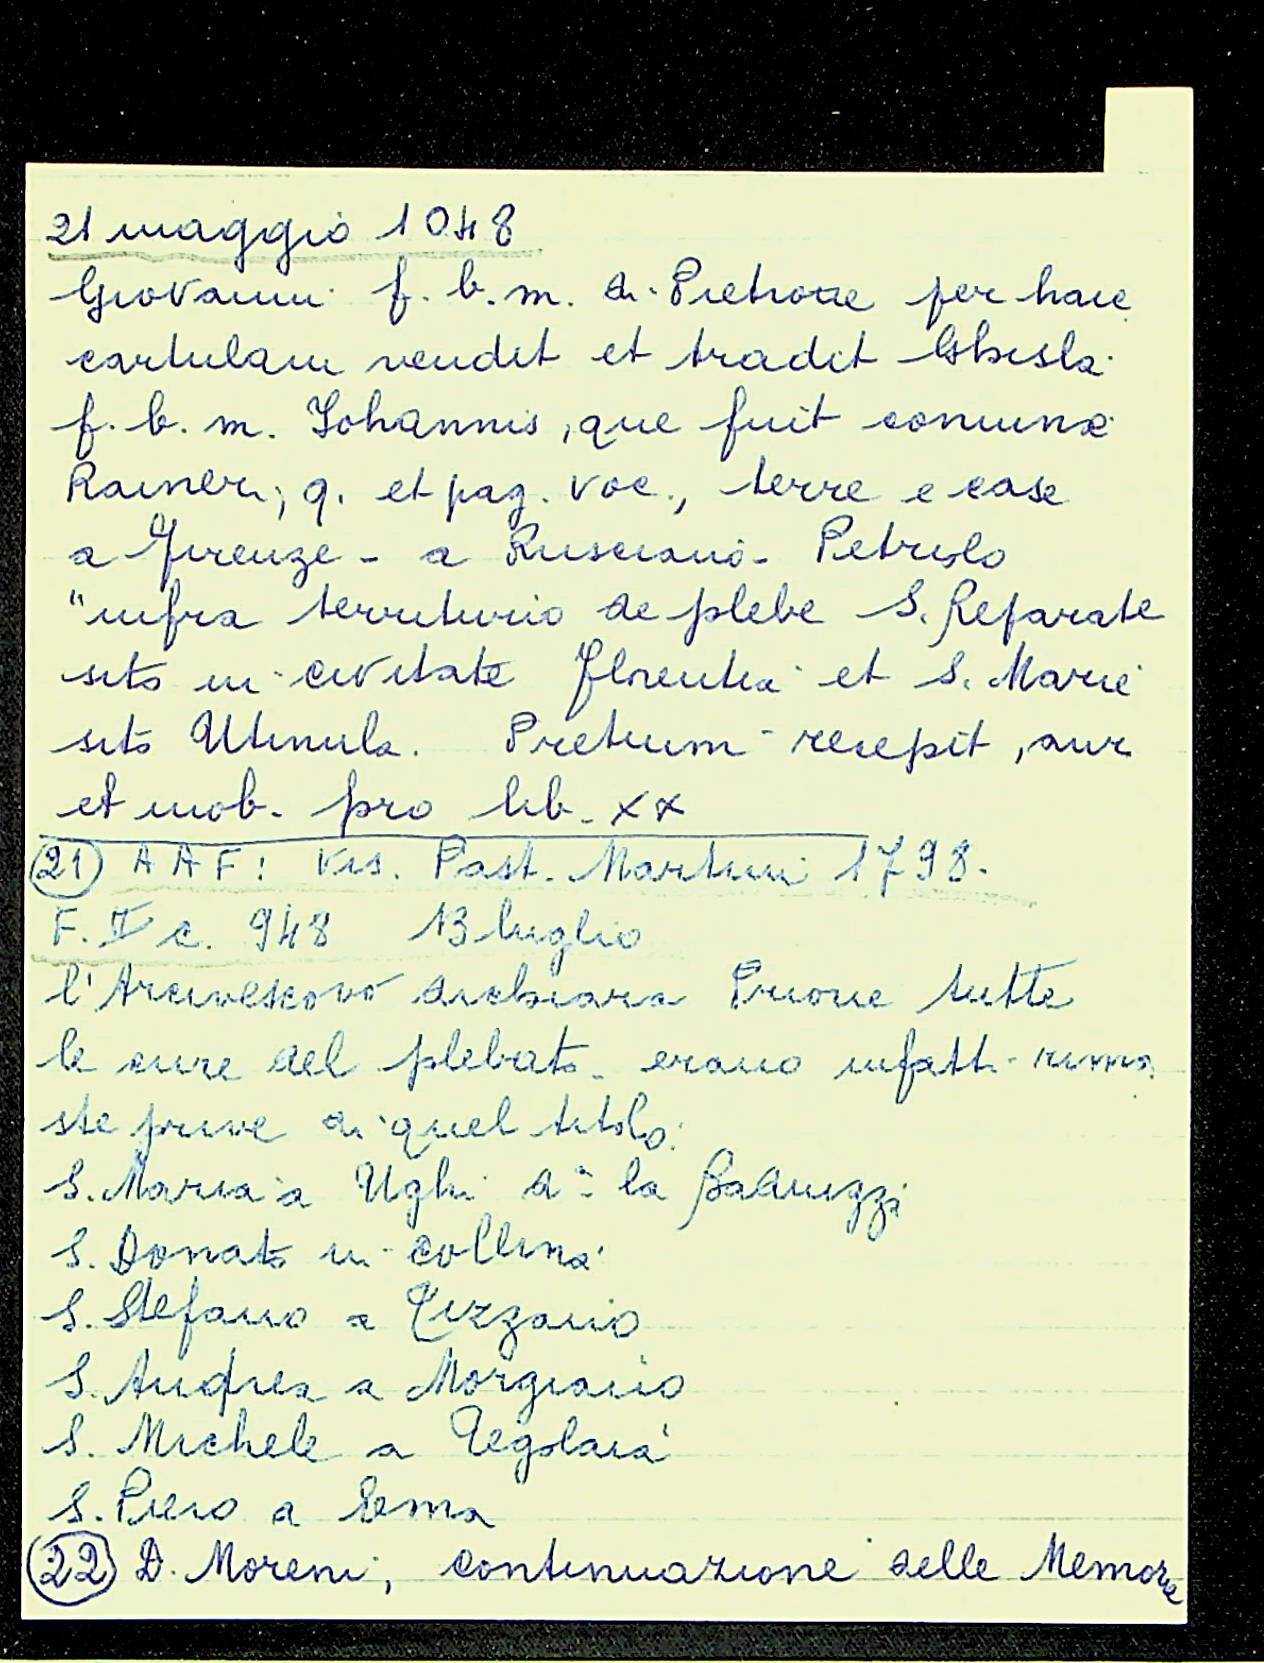 21 maggio 1048
Giovanni f. b. m. di Pietrone per hanc
cartulam vendit et tradit Ghisla
f. b. m. Johannis, que fuit comunx
Raineri, q. et pag. voc., terre e case
a Firenze - a Rusciano - Petriolo
"infra territurio de plebe S. Reparate
sito in civitate Florentia et S. Marie
sito Utinula. Pretium recepit, aur
et mob. pro lib. xx
21 A A F: Vis. Past. Martini 1798.
F. II c. 948 13 luglio
l'Arcivescovo dichiara Priorie tutte
le cure del plebato. erano infatti rima
ste prive di quel titolo:
S. Maria a Ughi d.a la Badiuzzi
S. Donato in collina
S. Stefano a Tizzano
S. Andrea a Morgiano
S. Michele a Tegolaia
S. Piero a Ema
22 D. Moreni, continuazione delle Memorie